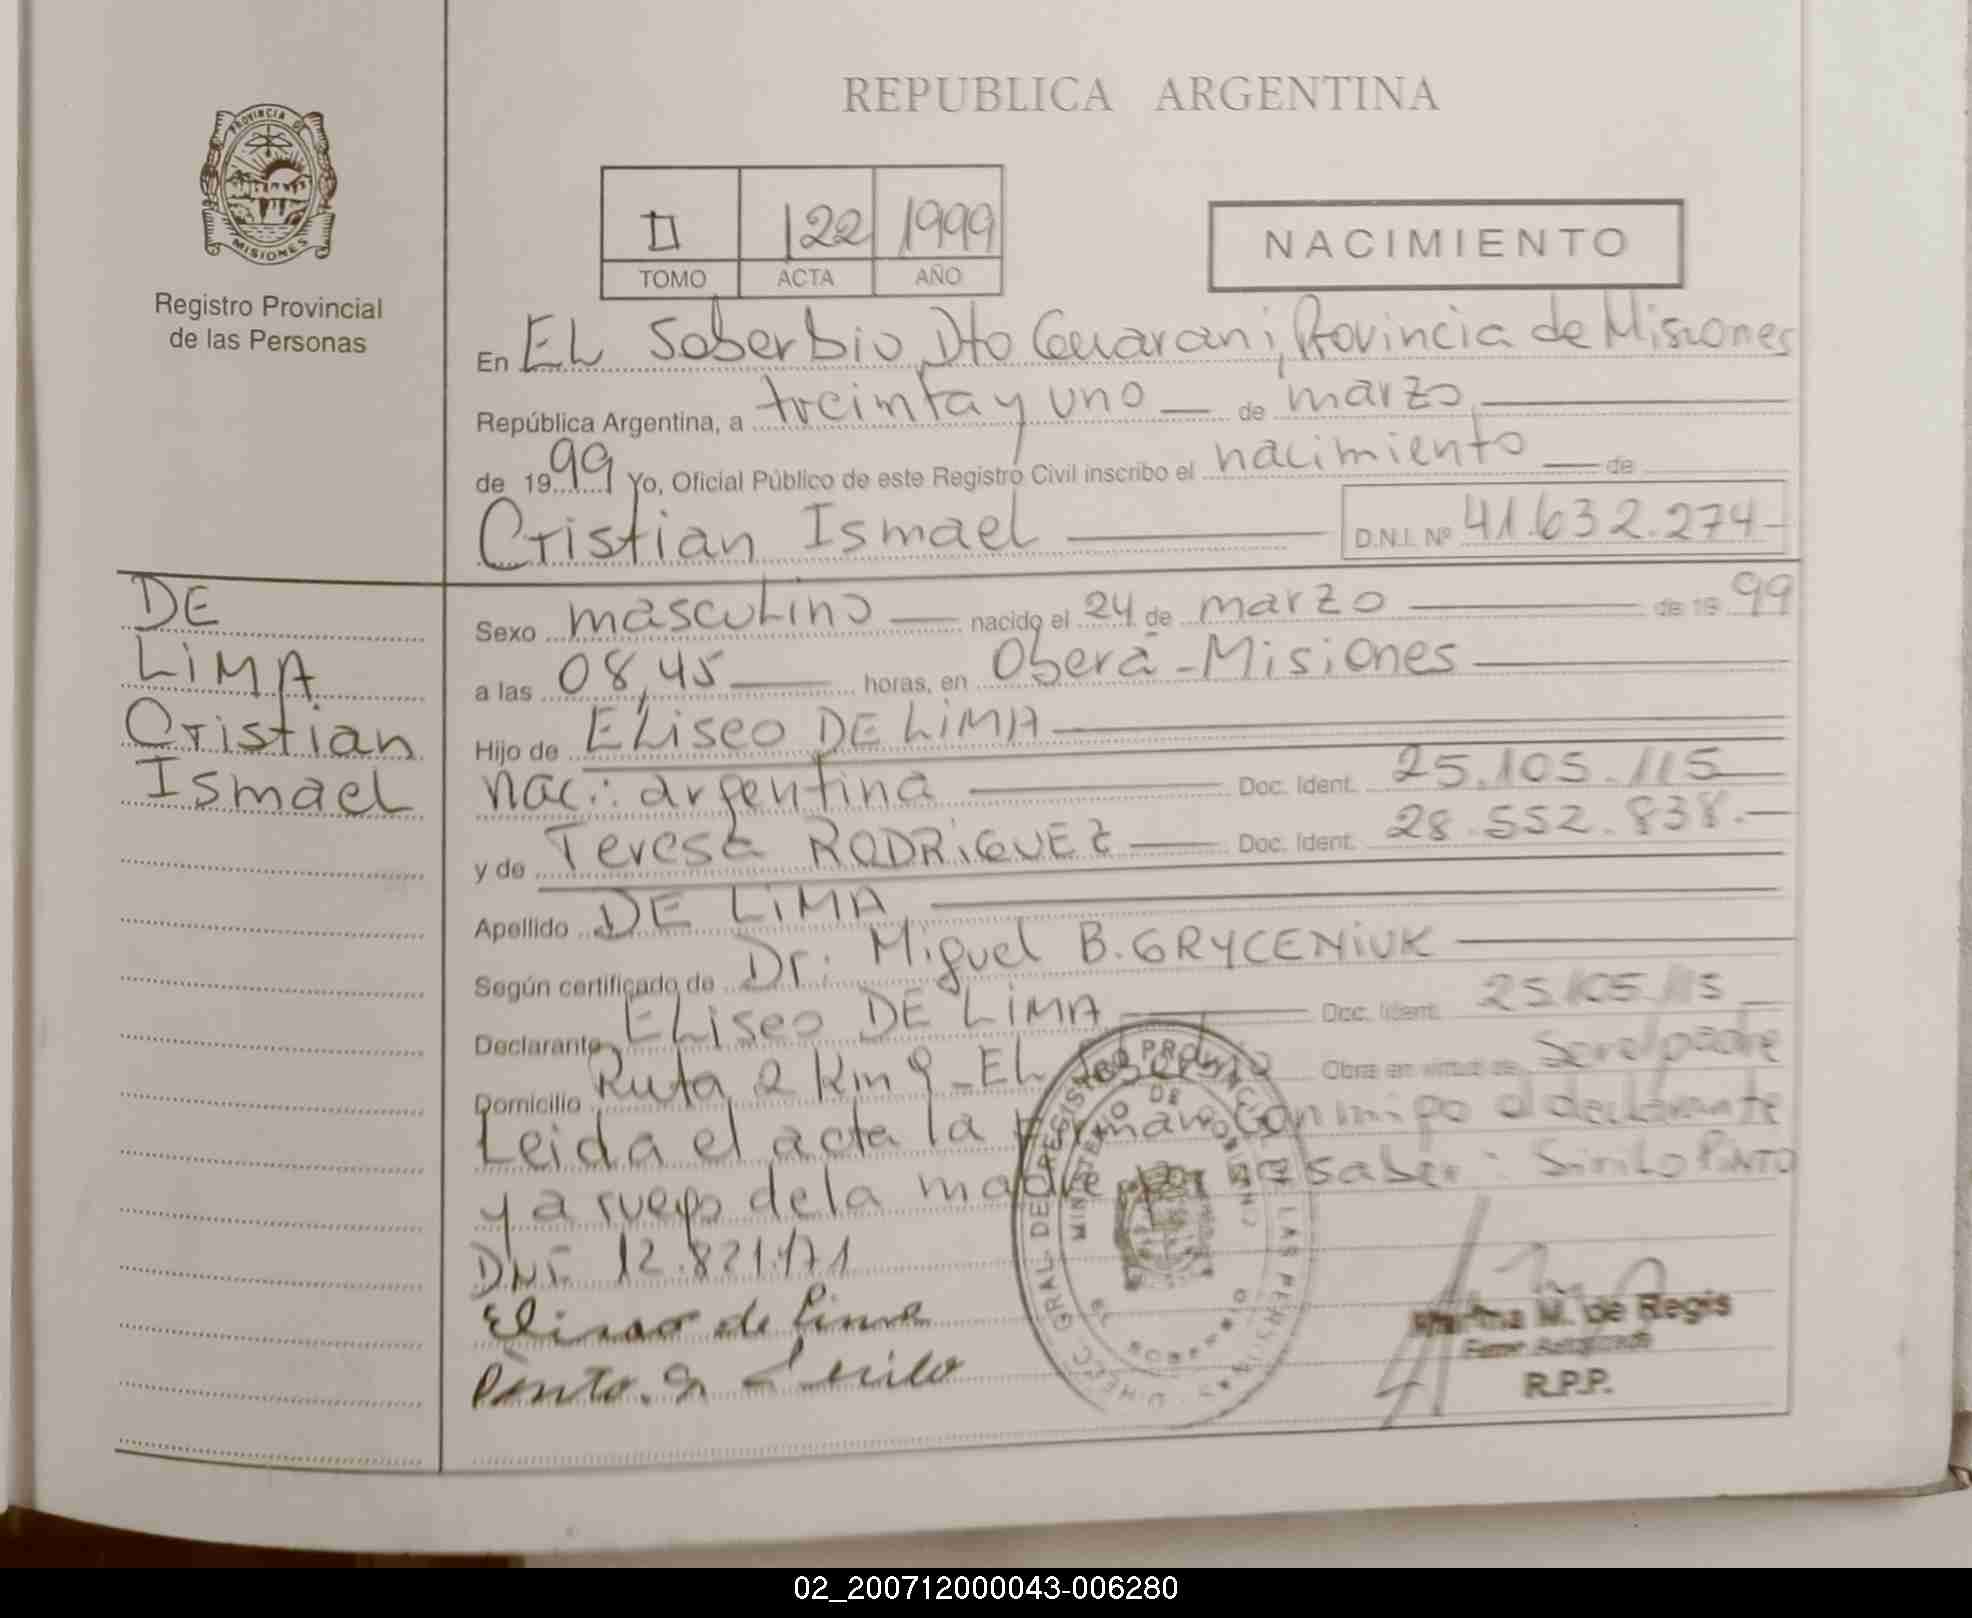 REPUBLICA ARGENTINA
PROVINCIA DE
MISIONES
Registro Provincial
de las Personas
II 122 1999
TOMO ACTA AÑO
NACIMIENTO
En EL Soberbio, Dto Guarani, Provincia de Misiones
República Argentina, a treinta y uno — de marzo
de 1999 Yo, Oficial Público de este Registro Civil inscribo el nacimiento — de
Cristian Ismael — D.N.I. Nº 41.632.274-
DE
LiMA
Cristian
Ismael
Sexo masculino — nacido el 24 de marzo — de 1999
a las 08,45 — horas, en Oberá - Misiones —
Hijo de ELiseo DE LiMA —
nac.: argentina — Doc. Ident. 25.105.115
y de Teresa RODRiGUEZ — Doc. Ident. 28.552.838.—
Apellido DE LiMA —
Según certificado de Dr. Miguel B. GRYCENiUK —
Declarante ELiseo DE LiMA — Doc. Ident. 25.105.115 —
Domicilio Ruta 2 Km 9 - EL Soberbio Obra en virtud de Ser el padre
Leida el acta la firman conmigo el declarante
y a ruego de la madre por no saber: Sirilo PiNTO
DNI 12.821.171
Eliseo de Lima
Pinto
Martha M. de Regis
R.P.P.
DIREC. GRAL. DEL REGISTRO PROVINCIAL DE LAS PERSONAS
MINISTERIO DE GOBIERNO
02_200712000043-006280